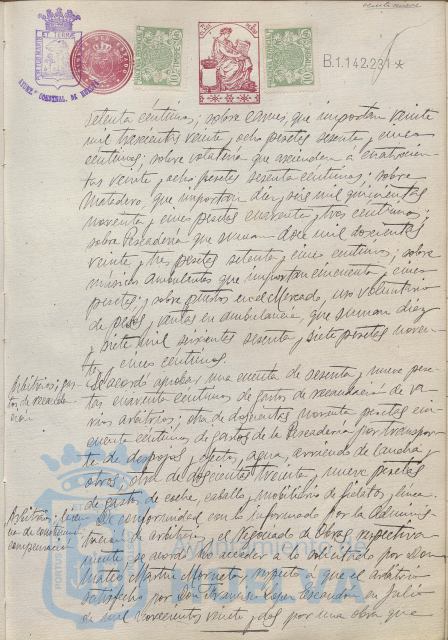 B.1.142.231*
setenta centimos; sobre carnes, que importan veinte
mil trescientos veinte y ocho pesetas sesenta y cinco
centimos; sobre volatería que ascienden a cuatrocien
tas veinte y ocho pesetas sesenta centimos; sobre
Matadero, que importan diez y seis mil quinientas
noventa y cinco pesetas cuarenta y tres centimos;
sobre Pescadería que suman doce mil doscientas
veinte y tres pesetas setenta y cinco centimos; sobre
músicos ambulantes que importan cincuenta y cinco
pesetas; y sobre puestos en el Mercado, uso voluntario
de pesas y ventas en ambulancia, que suman diez
y siete mil seiscientas sesenta y siete pesetas noven
ta y cinco centimos.
Arbitrios; gas
tos de recauda
ción
Se acordó aprobar una cuenta de sesenta y nueve pese
tas cuarenta centimos de gastos de recaudación de va
rios arbitrios; otra de doscientas noventa pesetas cin
cuenta centimos de gastos de la Pescadería por transpor
te de despojos, efectos, agua, arriendo de lancha y
obras; otra de doscientas treinta y nueve pesetas
de gastos de coche, caballo, mobiliario de fielatos y
Arbitrios;
compensación
De conformidad con lo informado por la Adminis
tración de Arbitrios y el Negociado de Obras respectiva
mente, se acordó no acceder a lo solicitado por Don
Mateo Martin respecto á que el arbitrio
satisfecho por Don Lopez en Julio
de mil novecientos veinte y dos por una obra que